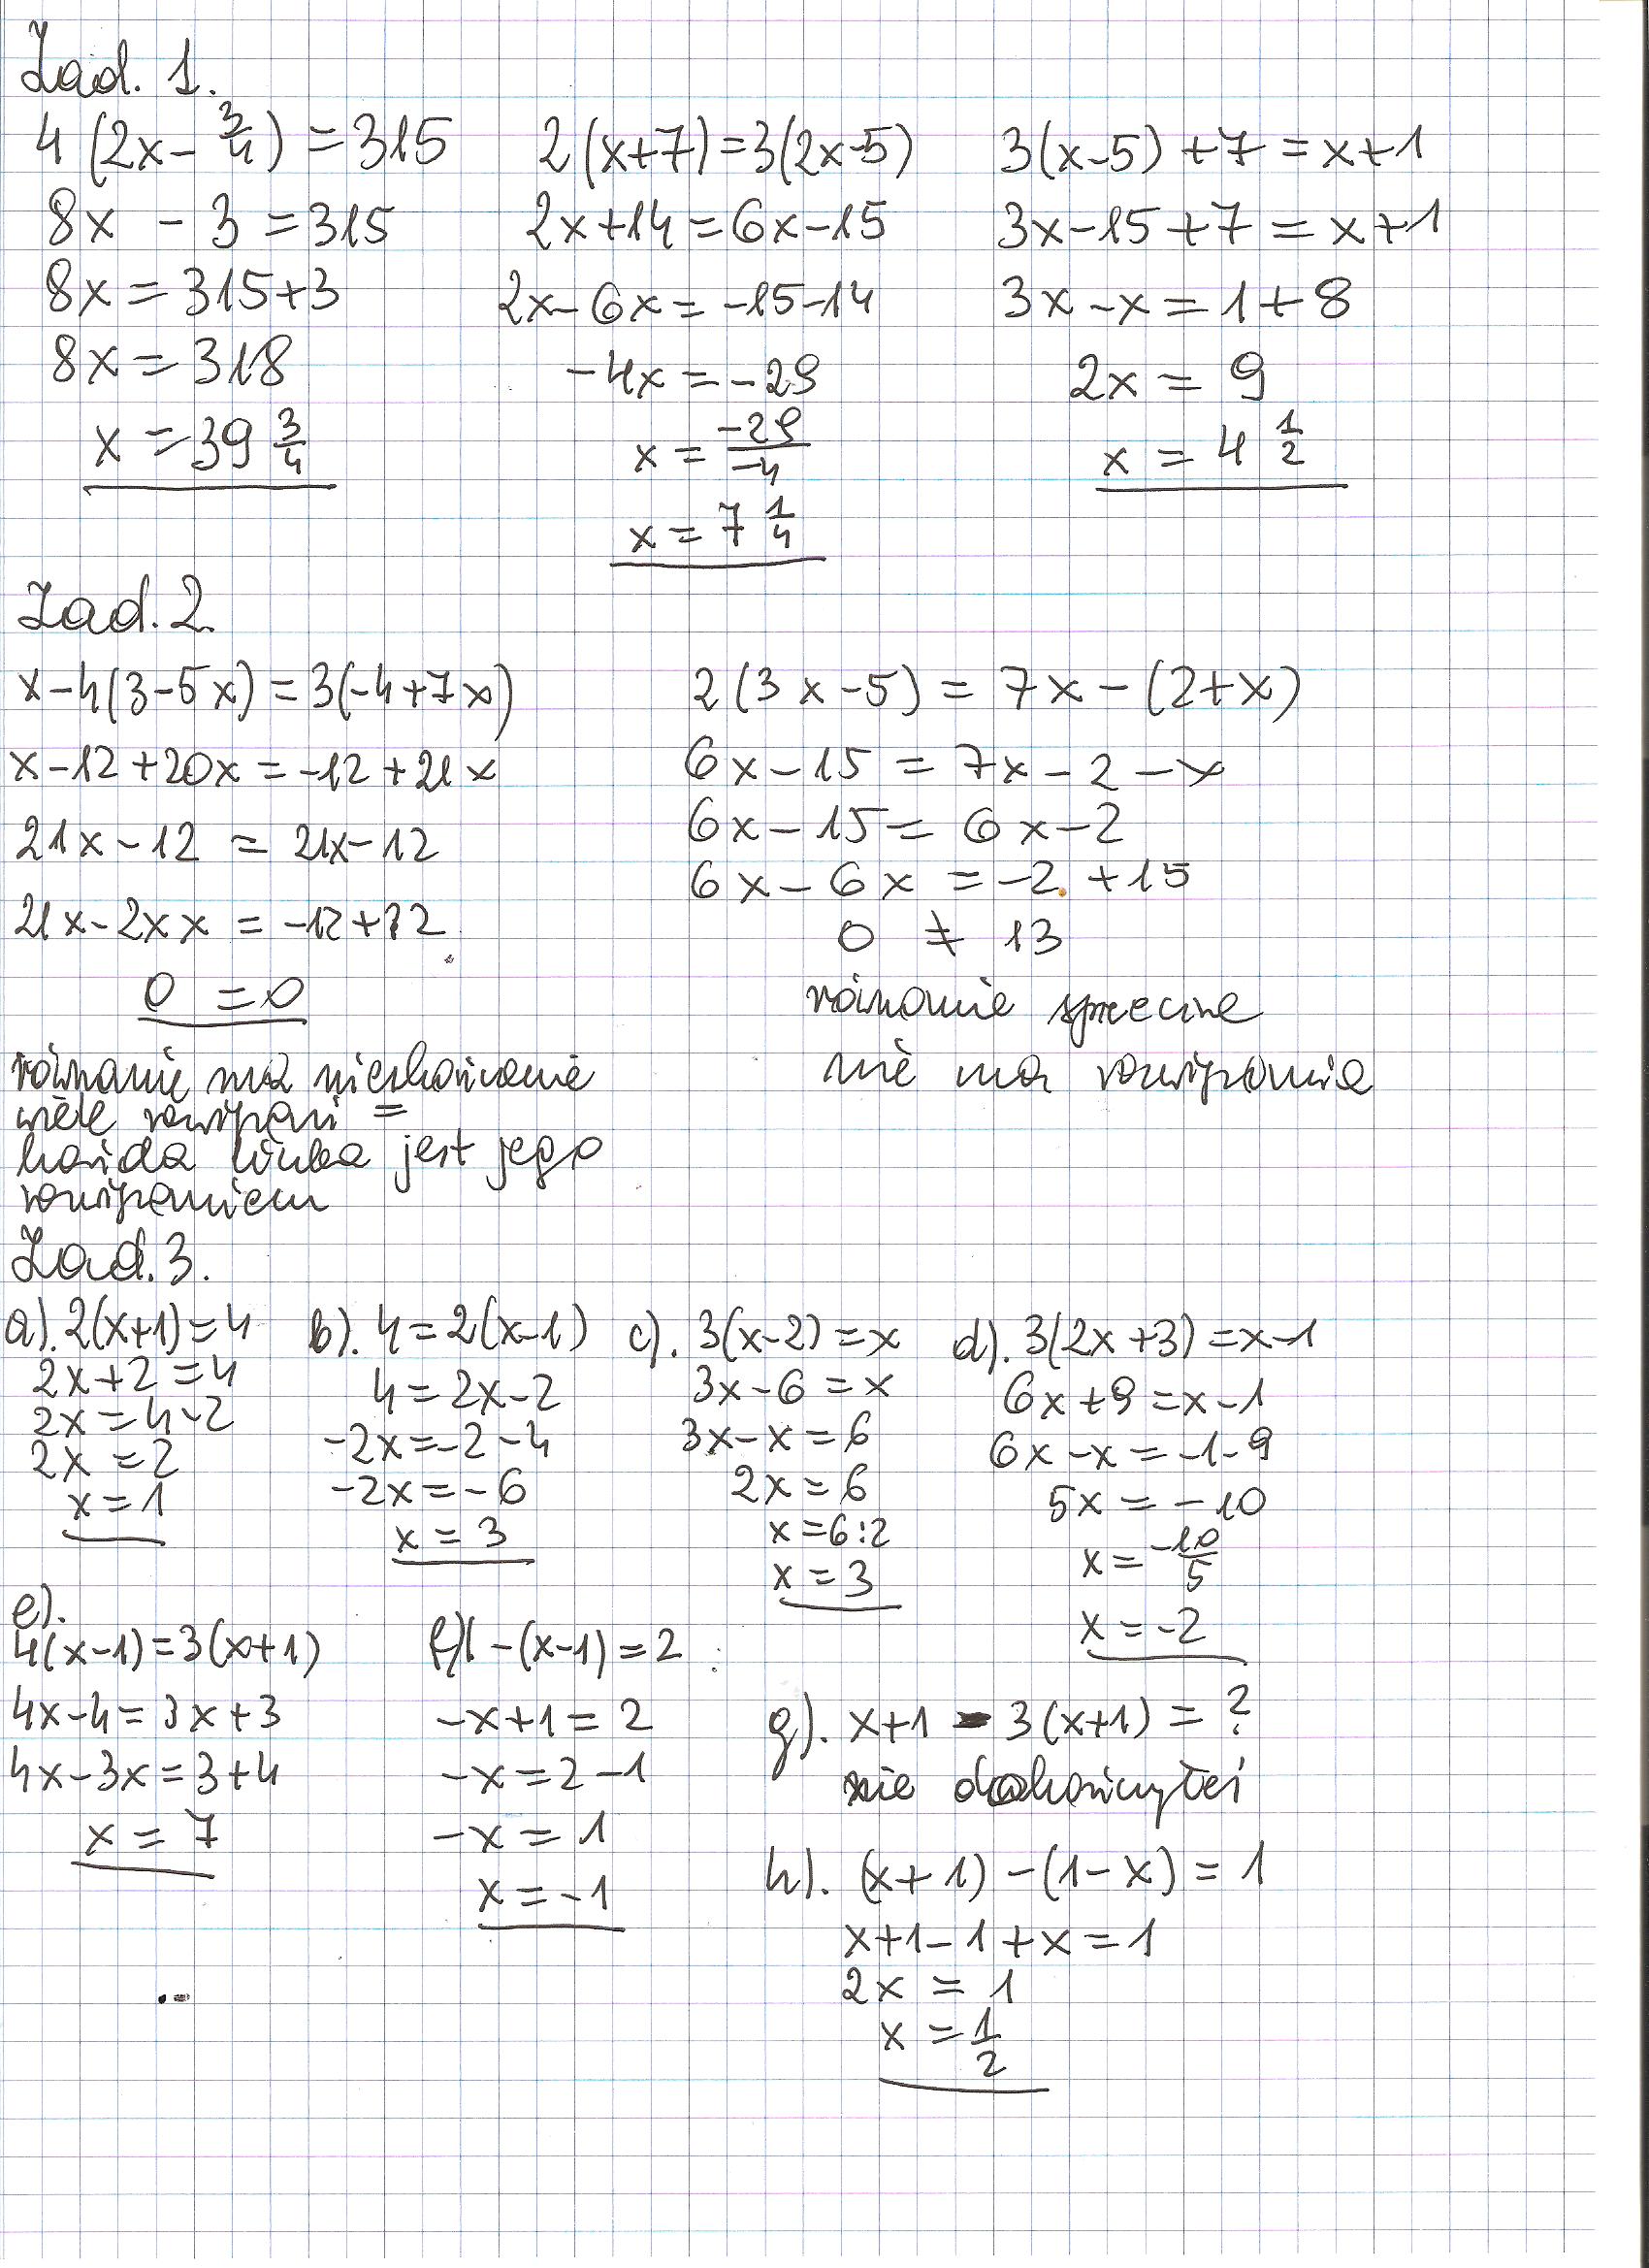 Zad. 1.
4(2x - 3/4) = 315
8x - 3 = 315
8x = 315+3
8x = 318
x = 39 3/4
2(x+7) = 3(2x-5)
2x+14 = 6x-15
2x-6x = -15-14
-4x = -29
x = -29/-4
x = 7 1/4
3(x-5) +7 = x+1
3x-15+7 = x+1
3x-x = 1+8
2x = 9
x = 4 1/2
Zad. 2.
x-4(3-5x) = 3(-4+7x)
x-12+20x = -12+21x
21x-12 = 21x-12
21x-21x = -12+12
0 = 0
równanie ma nieskończenie
wiele rozwiązań =
każda liczba jest jego
rozwiązaniem
2(3x-5) = 7x-(2+x)
6x-15 = 7x-2-x
6x-15 = 6x-2
6x-6x = -2+15
0 ≠ 13
równanie sprzeczne
nie ma rozwiązania
Zad. 3.
a). 2(x+1) = 4
2x+2 = 4
2x = 4-2
2x = 2
x = 1
b). 4 = 2(x-1)
4 = 2x-2
-2x = -2-4
-2x = -6
x = 3
c). 3(x-2) = x
3x-6 = x
3x-x = 6
2x = 6
x = 6:2
x = 3
d). 3(2x+3) = x-1
6x+9 = x-1
6x-x = -1-9
5x = -10
x = -10/5
x = -2
e).
4(x-1) = 3(x+1)
4x-4 = 3x+3
4x-3x = 3+4
x = 7
f) -(x-1) = 2
-x+1 = 2
-x = 2-1
-x = 1
x = -1
g). x+1 - 3(x+1) = ?
nie dokończyłeś
h). (x+1) - (1-x) = 1
x+1-1+x = 1
2x = 1
x = 1/2